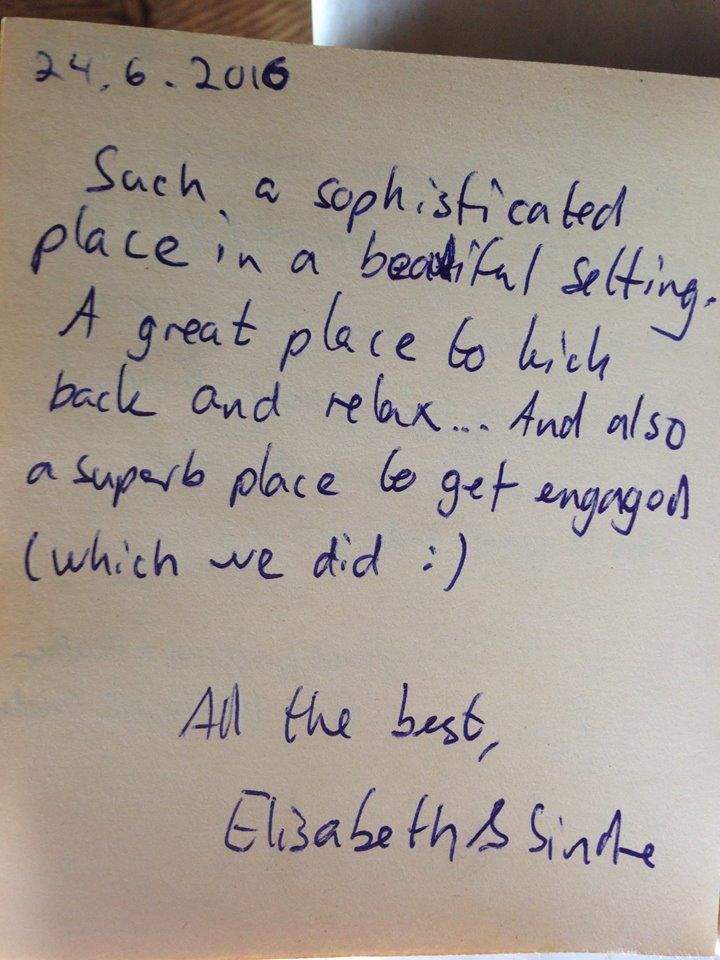 24.6.2016
Such a sophisticated
place in a beautiful setting.
A great place to kick
back and relax... And also
a superb place to get engaged
(which we did :)
All the best,
Elisabeth & Sindre